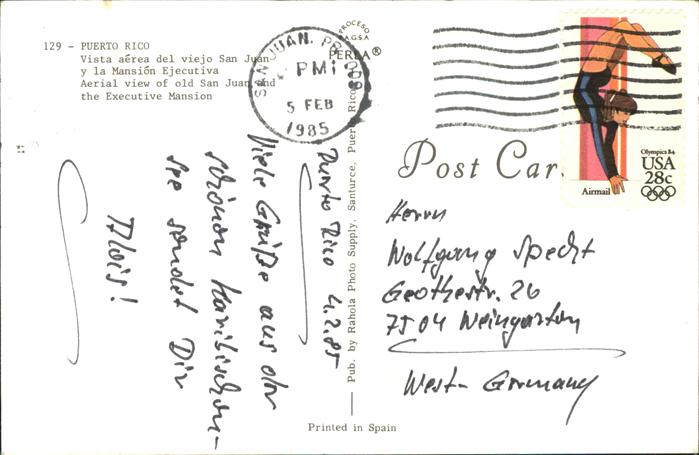 129 - PUERTO RICO
Vista aérea del viejo San Juan
y la Mansión Ejecutiva
Aerial view of old San Juan and
the Executive Mansion
PROCESO
A.G.S.A.
PERLA®
SAN JUAN, PR
PM
5 FEB
1985
Post Car
Olympics 84
USA
28c
Airmail
Puerto Rico 4.2.85
Viele Grüße aus der
schönen Karibischen-
see sendet Dir
Alois!
Pub. by Rahola Photo Supply. Santurce, Puerto Rico
Herrn
Wolfgang Specht
Geothestr. 26
7504 Weingarten
West-Germany
Printed in Spain